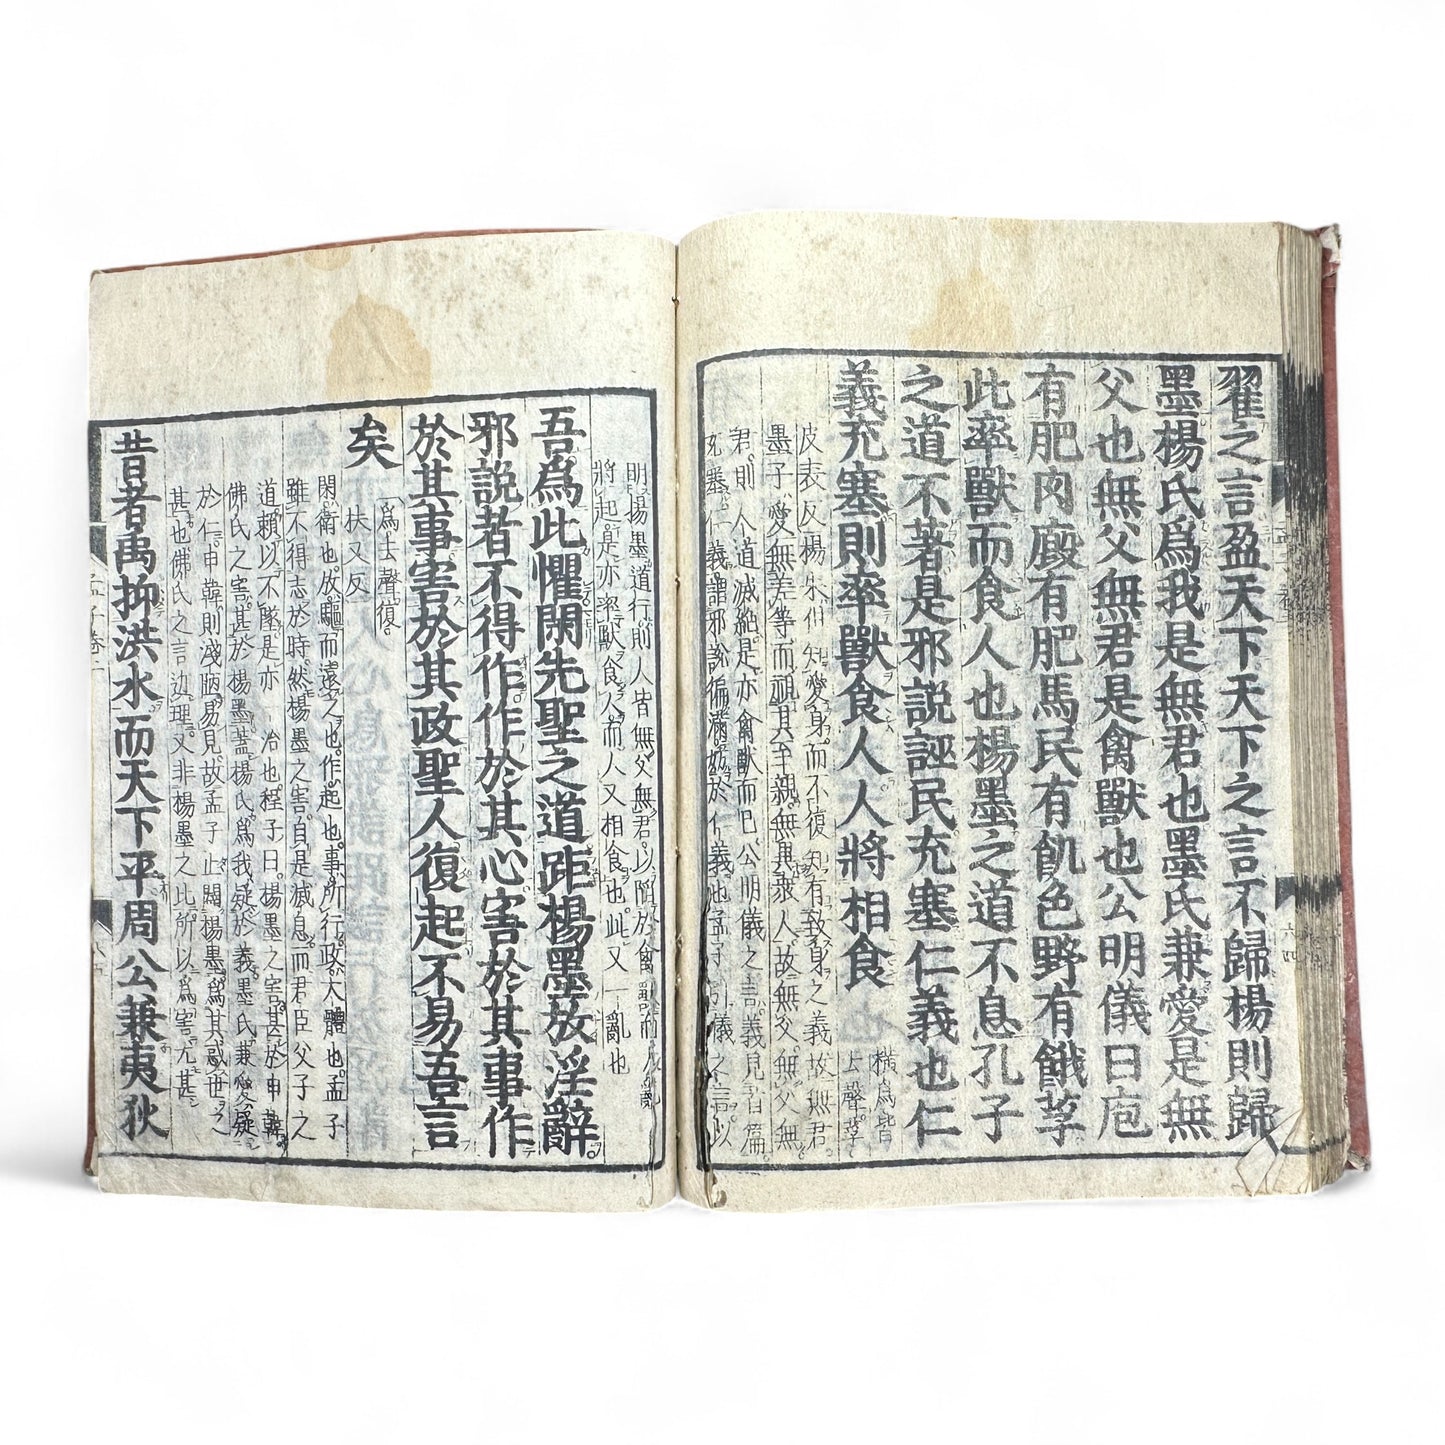 翟之言盈天下天下之言不歸楊則歸
墨楊氏爲我是無君也墨氏兼愛是無
父也無父無君是禽獸也公明儀曰庖
有肥肉廄有肥馬民有飢色野有餓莩
此率獸而食人也楊墨之道不息孔子
之道不著是邪說誣民充塞仁義也仁
義充塞則率獸食人人將相食
橫爲皆
去聲莩
皮表反楊朱但知愛身而不復知有致身之義故無君
墨子愛無差等而視其至親無異衆人故無父無父無
君則人道滅絶是亦禽獸而已公明儀之言義見首篇
充塞仁義謂邪說偏滿妨於仁義也孟子引儀之言以
明楊墨道行則人皆無父無君以陷於禽獸而大亂
將起是亦率獸食人而人又相食也此又一亂也
吾爲此懼閑先聖之道距楊墨放淫辭
邪說者不得作作於其心害於其事作
於其事害於其政聖人復起不易吾言
矣
爲去聲復
扶又反
閑衛也放驅而遠之也作起也事所行政大體也孟子
雖不得志於時然楊墨之害自是滅息而君臣父子之
道賴以不墜是亦一治也程子曰楊墨之害甚於申韓
佛氏之害甚於楊墨蓋楊氏爲我疑於義墨氏兼愛疑
於仁申韓則淺陋易見故孟子止闢楊墨爲其惑世之
甚也佛氏之言近理又非楊墨之比所以爲害尤甚
昔者禹抑洪水而天下平周公兼夷狄
孟子卷三